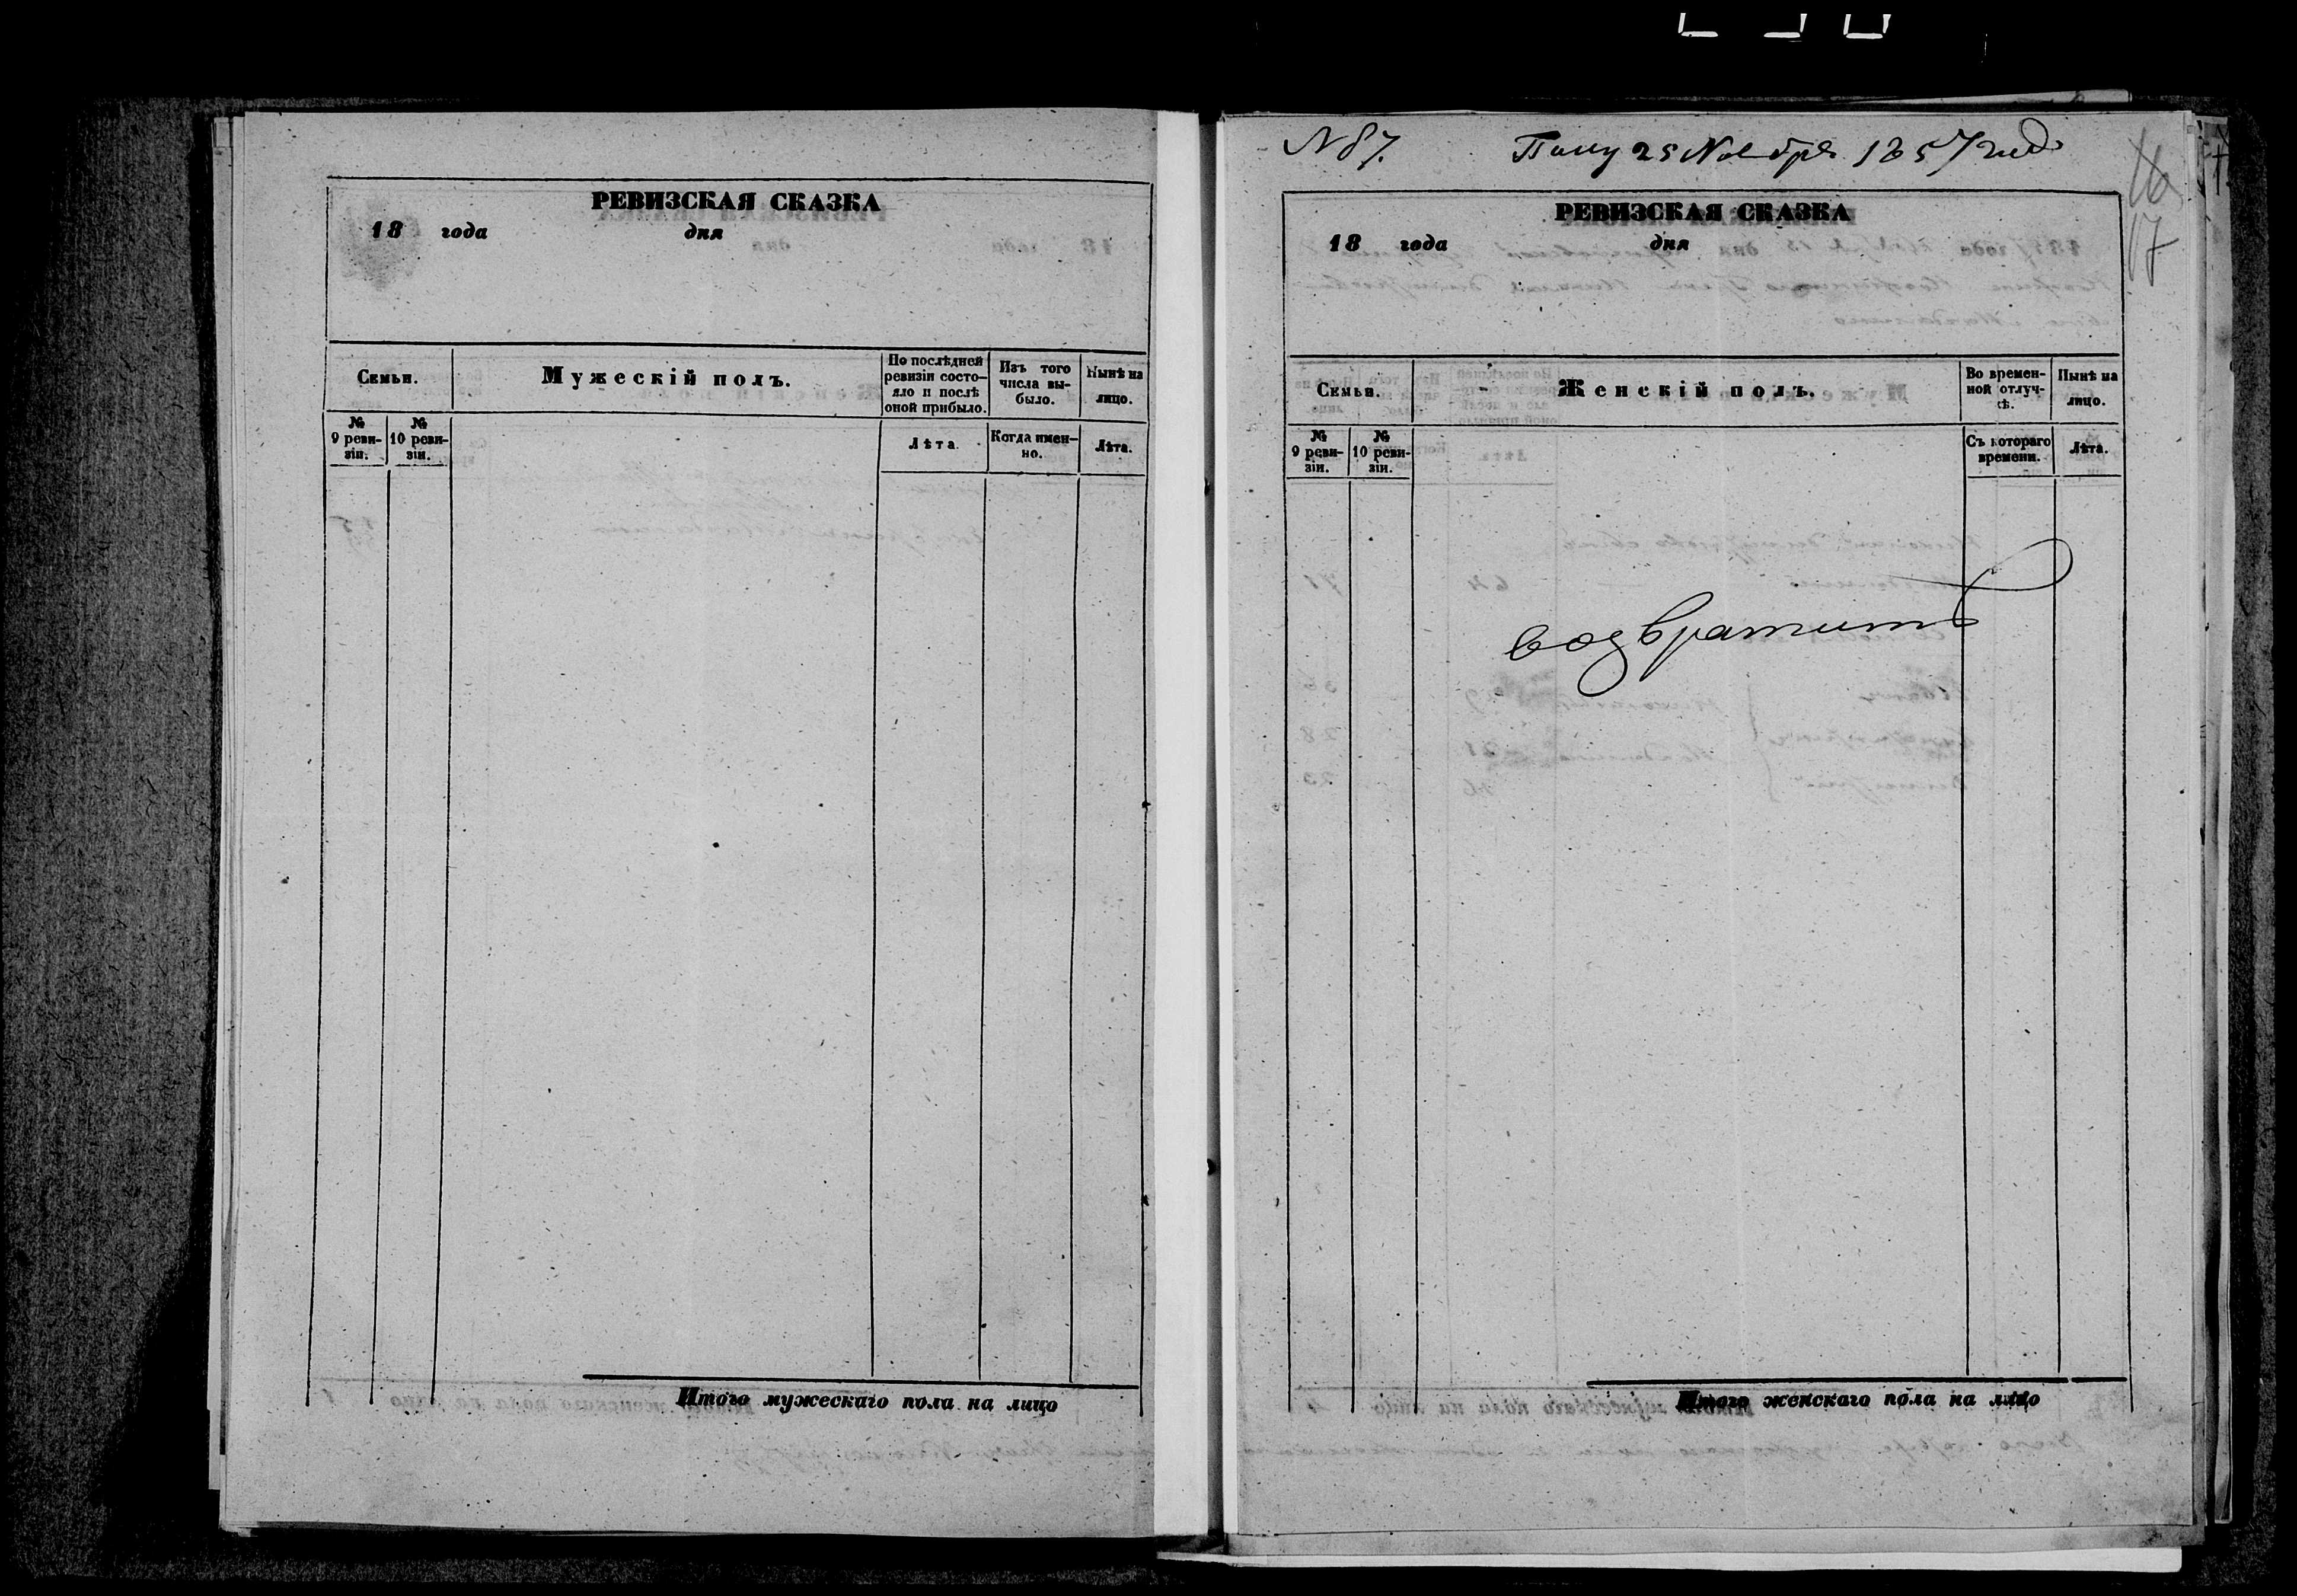 РЕВИЗСКАЯ СКАЗКА
18 года дня
Семьи.
Мужескiй полъ.
По послѣдней ревизiи состо-
яло и послѣ
оной прибыло.
Изъ того
числа вы-
было.
Нынѣ на
лицо.
№
9 реви-
зiи.
№
10 реви-
зiи.
Лѣта.
Когда имен-
но.
Лѣта.
Итого мужескаго пола на лицо
N 87.
25 Ноября 1857 года
16
17
РЕВИЗСКАЯ СКАЗКА
18 года дня
Семьи.
Женскiй полъ.
Во времен-
ной отлуч-
кѣ.
Нынѣ на
лицо.
№
9 реви-
зiи.
№
10 реви-
зiи.
Съ котораго
времени.
Лѣта.
возвратить
Итого женскаго пола на лицо